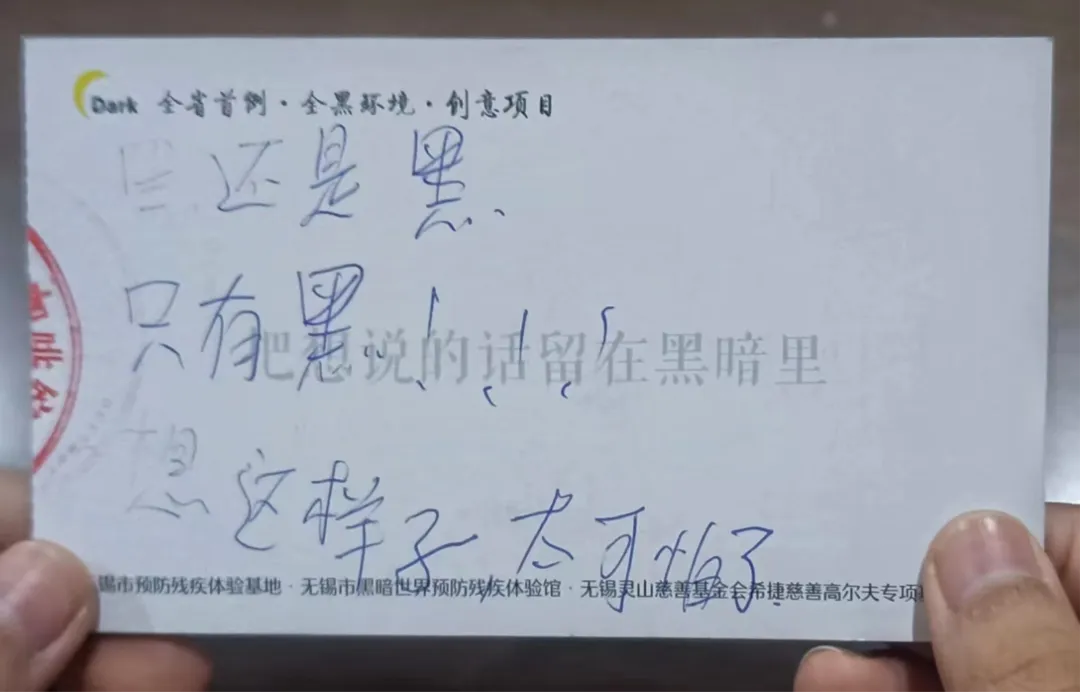 Dark 全省首例·全黑环境·创意项目
黑还是黑.
只有黑..!!!
把想说的话留在黑暗里
想这样子,太可怕了.
锡市预防残疾体验基地·无锡市黑暗世界预防残疾体验馆·无锡灵山慈善基金会希捷慈善高尔夫专项